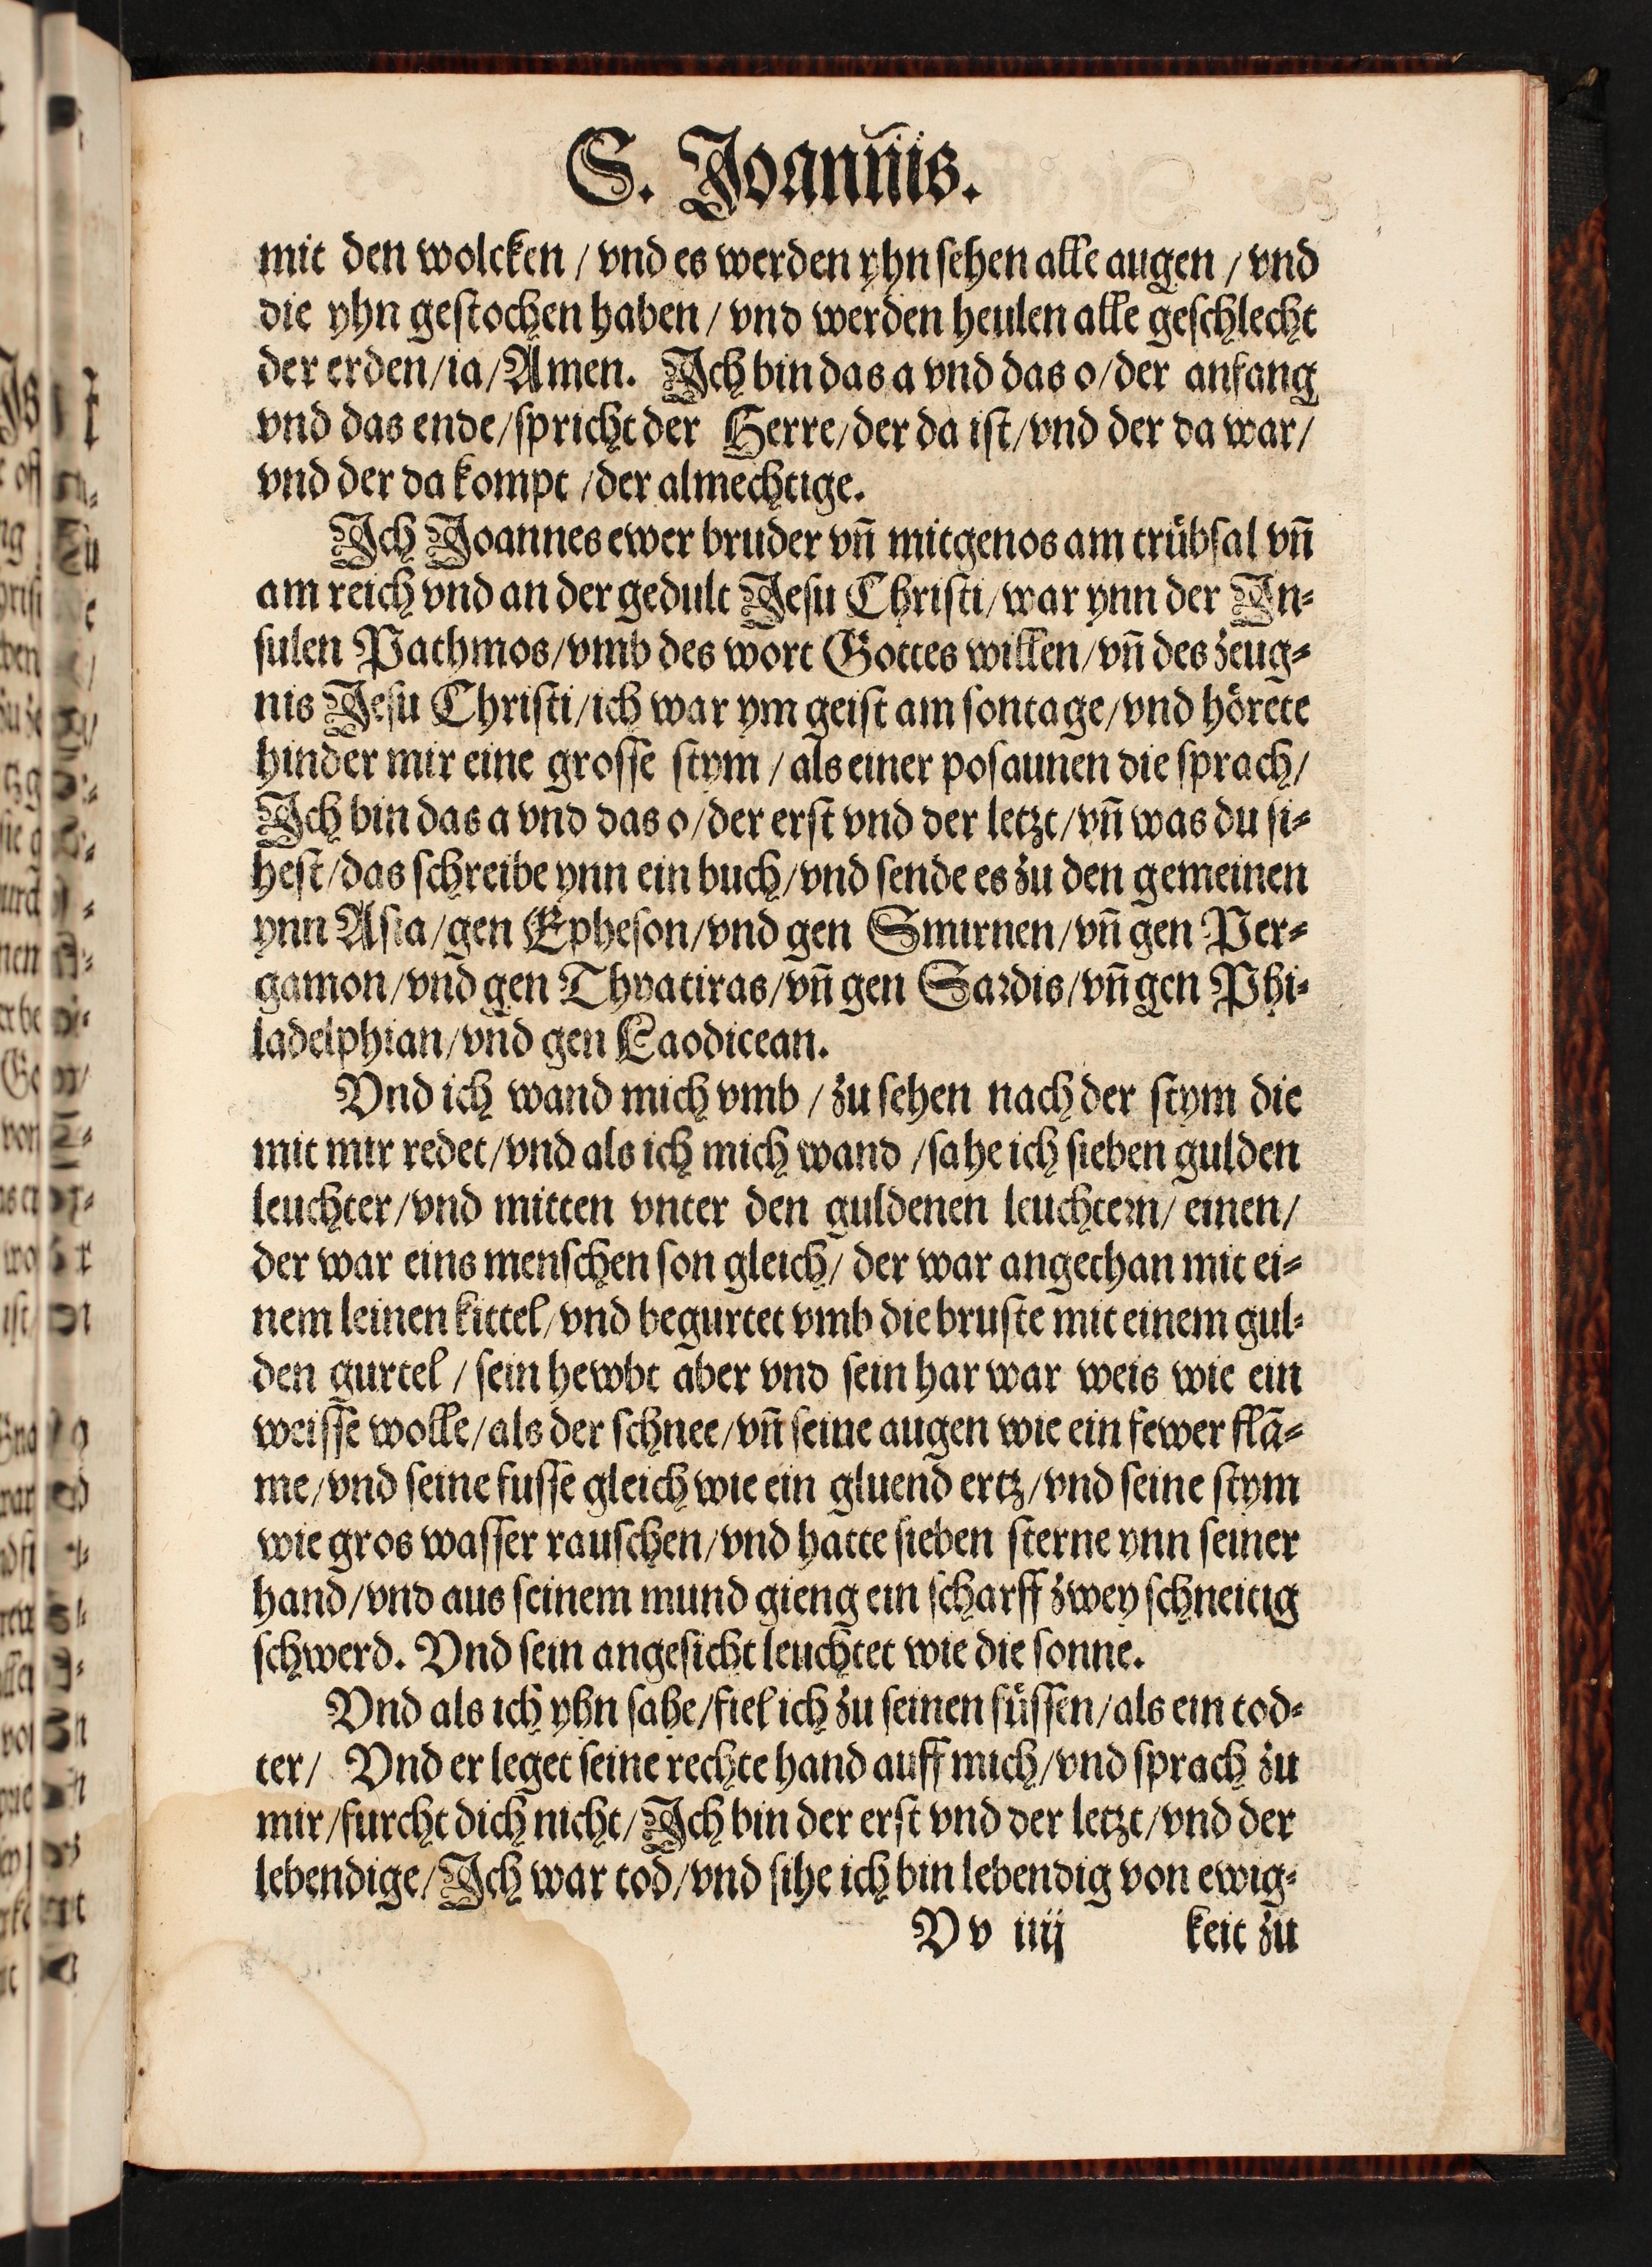 S. Joanñis.
mit den wolcken / vnd es werden yhn sehen alle augen / vnd
die yhn gestochen haben / vnd werden heulen alle geschlecht
der erden/ia/Amen. Ich bin das a vnd das o/der anfang
vnd das ende/spricht der Herre/der da ist/vnd der da war/
vnd der da kompt /der almechtige.
Ich Joannes ewer bruder vn̄ mitgenos am trübsal vn̄
am reich vnd an der gedult Jesu Christi/war ynn der In⸗
sulen Pathmos/vmb des wort Gottes willen/vn̄ des zeug⸗
nis Jesu Christi/ich war ym geist am sontage/vnd hörete
hinder mir eine grosse stym / als einer posaunen die sprach/
Ich bin das a vnd das o/der erst vnd der letzt/vn̄ was du si⸗
hest/das schreibe ynn ein buch/vnd sende es zu den gemeinen
ynn Asia/gen Epheson/vnd gen Smirnen/vn̄ gen Per⸗
gamon/vnd gen Thyatiras/vn̄ gen Sardis/vn̄ gen Phi⸗
ladelphian/vnd gen Laodicean.
Vnd ich wand mich vmb / zu sehen nach der stym die
mit mir redet/vnd als ich mich wand /sahe ich sieben gulden
leuchter/vnd mitten vnter den guldenen leuchtern/ einen/
der war eins menschen son gleich/ der war angethan mit ei⸗
nem leinen kittel/vnd begurtet vmb die bruste mit einem gul⸗
den gurtel / sein hewbt aber vnd sein har war weis wie ein
weisse wolle/als der schnee/vn̄ seine augen wie ein fewer flā⸗
me/vnd seine fusse gleich wie ein gluend ertz/vnd seine stym
wie gros wasser rauschen/vnd hatte sieben sterne ynn seiner
hand/vnd aus seinem mund gieng ein scharff zwey schneitig
schwerd. Vnd sein angesicht leuchtet wie die sonne.
Vnd als ich yhn sahe/fiel ich zu seinen füssen/als ein tod⸗
ter/ Vnd er leget seine rechte hand auff mich/vnd sprach zu
mir/furcht dich nicht/Ich bin der erst vnd der letzt/vnd der
lebendige/Ich war tod/vnd sihe ich bin lebendig von ewig⸗
V v iiij keit zu